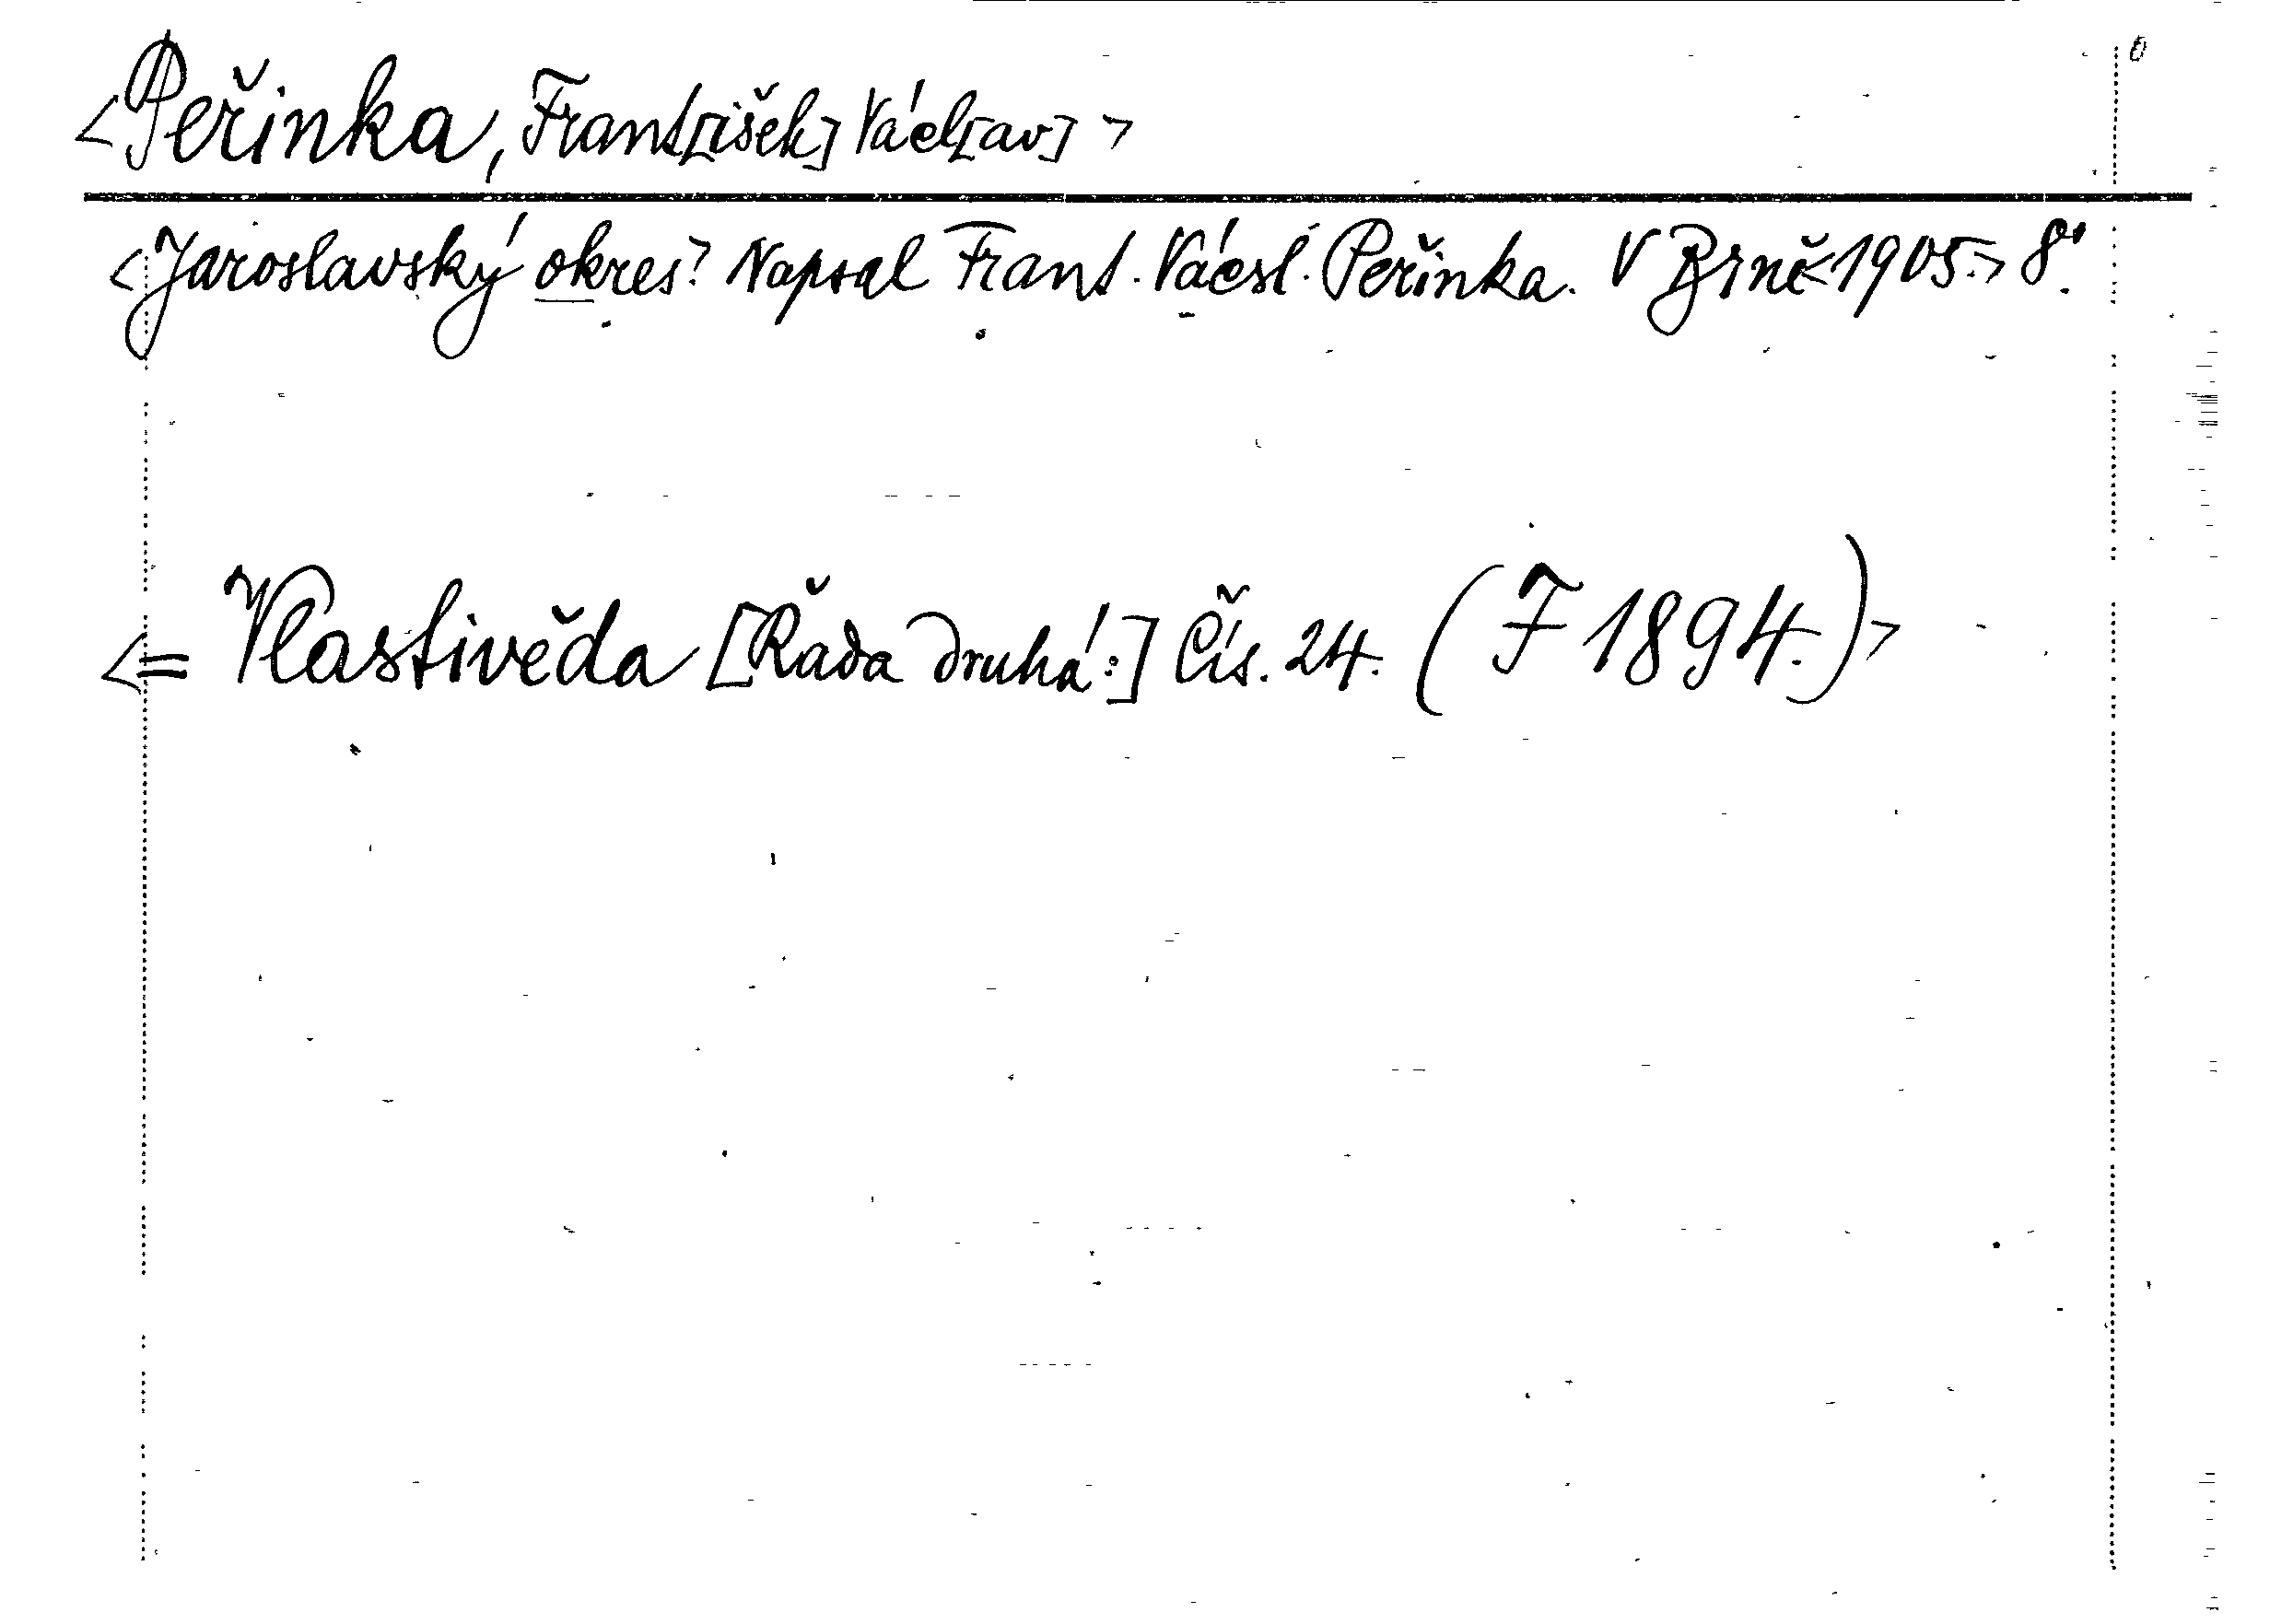 <Peřinka, Frant[išek] Václ[av]>
<Jaroslavský okres? Napsal Frant. Václ. Peřinka. V Brně <1905.> 8°.
<= Vlastivěda [Řada druhá:] Čís. 24. (F 1894.)>